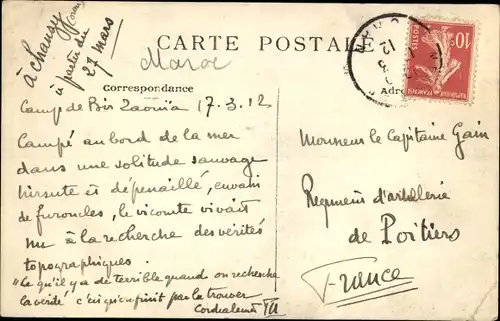 à Chanzy (Oran)
à partir du
27 mars
CARTE POSTALE
Maroc
Correspondance
Adre
Camp de Bir Zaouïa 17.3.12
Campé au bord de la mer
dans une solitude sauvage
hirsute et dépenaillé, envahi
de furoncles, le vicomte vivait
nu à la recherche des vérités
topographiques.
"Ce qu'il y a de terrible quand on recherche
la vérité c'est qu'on finit par la trouver
Cordialement
Monsieur le Capitaine Gain
Régiment d'artillerie
de Poitiers
France
10
POSTES
REPUBLIQUE FRANÇAISE